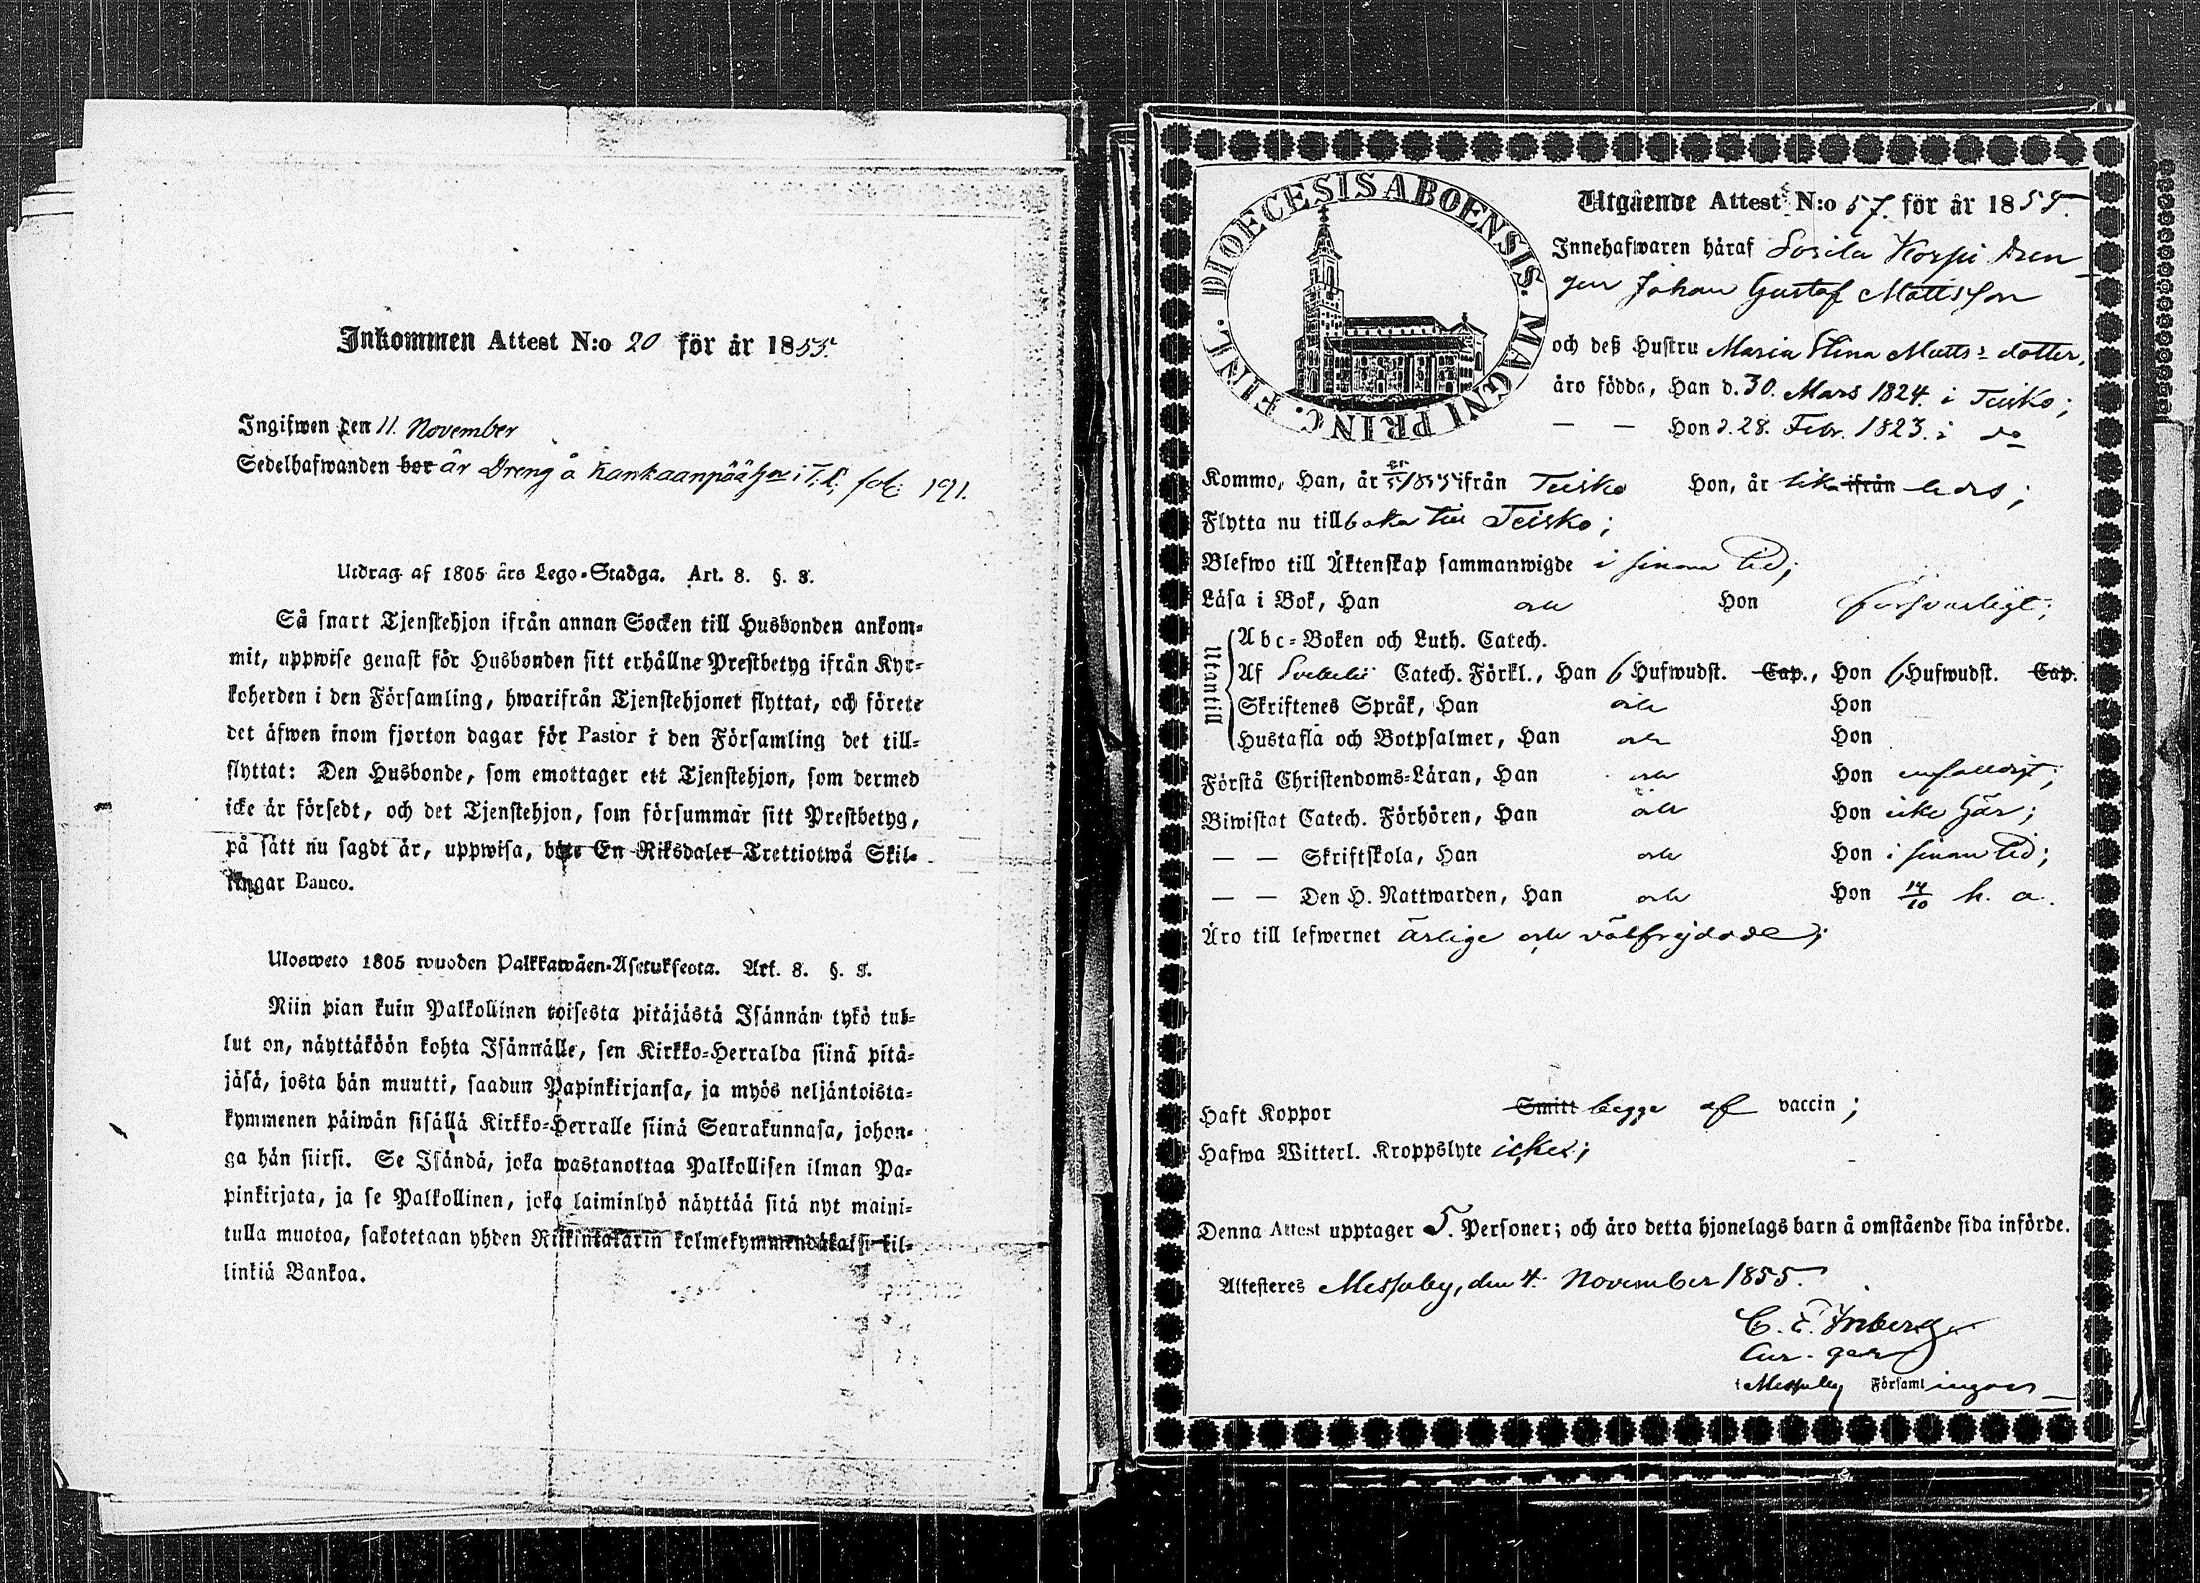 Inkommen Attest N:o 20 för år 1855.
Ingifwen den 11. November
Sedelhafwanden bor är Dreng å Kankaanpää i T.k. fol: 191.
Utdrag af 1805 års Lego-Stadga. Art. 8. §. 3.
Så snart Tjenstehjon ifrån annan Socken till Husbonden ankom-
mit, uppwise genast för Husbonden sitt erhållne Prestbetyg ifrån Kyr-
koherden i den Församling, hwarifrån Tjenstehjonet flyttat, och förete
det äfwen inom fjorton dagar för Pastor i den Församling det till-
flyttat: Den Husbonde, som emottager ett Tjenstehjon, som dermed
icke är försedt, och det Tjenstehjon, som försummar sitt Prestbetyg,
på sätt nu sagdt är, uppwisa, böte En Riksdaler Trettiotwå Skil-
lingar Banco.
Ulosweto 1805 wuoden Palkkawäen-Asetuksesta. Art. 8. §. 3.
Niin pian kuin Palkollinen toisesta pitäjästä Isännän tykö tul-
lut on, näyttäköön kohta Isännälle, sen Kirkko-Herralda siinä pitä-
jäsä, josta hän muutti, saadun Papinkirjansa, ja myös neljäntoista-
kymmenen päiwän sisällä Kirkko-Herralle siinä Seurakunnasa, johon-
ga hän siirsi. Se Isändä, joka wastanottaa Palkollisen ilman Pa-
pinkirjata, ja se Palkollinen, joka laiminlyö näyttää sitä nyt maini-
tulla muotoa, sakotetaan yhden Riikintalarin kolmekymmendäkaksi kil-
linkiä Bankoa.
DIOECESIS ABOENSIS. MAGNI PRINC. FINL.
Utgående Attest N:o 57. för år 1855.
Innehafwaren häraf Sorila Korpi Dren-
gen Johan Gustaf Mattsson
och deß Hustru Maria Stina Matts dotter,
äro födde, Han d. 30. Mars 1824. i Teisko;
— — Hon d. 28. Febr. 1823. i do
Kommo, Han, år 1855 ifrån Teisko Hon, år lika ifrån ledes;
Flytta nu tillbaka till Teisko;
Blefwo till Äktenskap sammanwigde i sinom tid;
Läsa i Bok, Han och Hon försvarligt;
Utantill
Abc-Boken och Luth. Catech.
Af Svebelii Catech. Förkl., Han 6 Hufwudst. Cap., Hon 6 Hufwudst. Cap.
Skriftenes Språk, Han och Hon
Hustafla och Botpsalmer, Han och Hon
Förstå Christendoms-Läran, Han och Hon enfaldigt;
Biwistat Catech. Förhören, Han och Hon icke här;
— — Skriftskola, Han och Hon i sinom tid;
— — Den H. Nattwarden, Han och Hon 14/10 h. a.
Äro till lefwernet ärlige och välfrejdade;
Haft Koppor Smitt begge af vaccin;
Hafwa Witterl. Kroppslyte icke;
Denna Attest upptager 5. Personer; och äro detta hjonelags barn å omstående sida införde.
Attesteres Messuby, den 4. November 1855.
C. E. Inberg
Cur. ger
i Messuby Församlingar